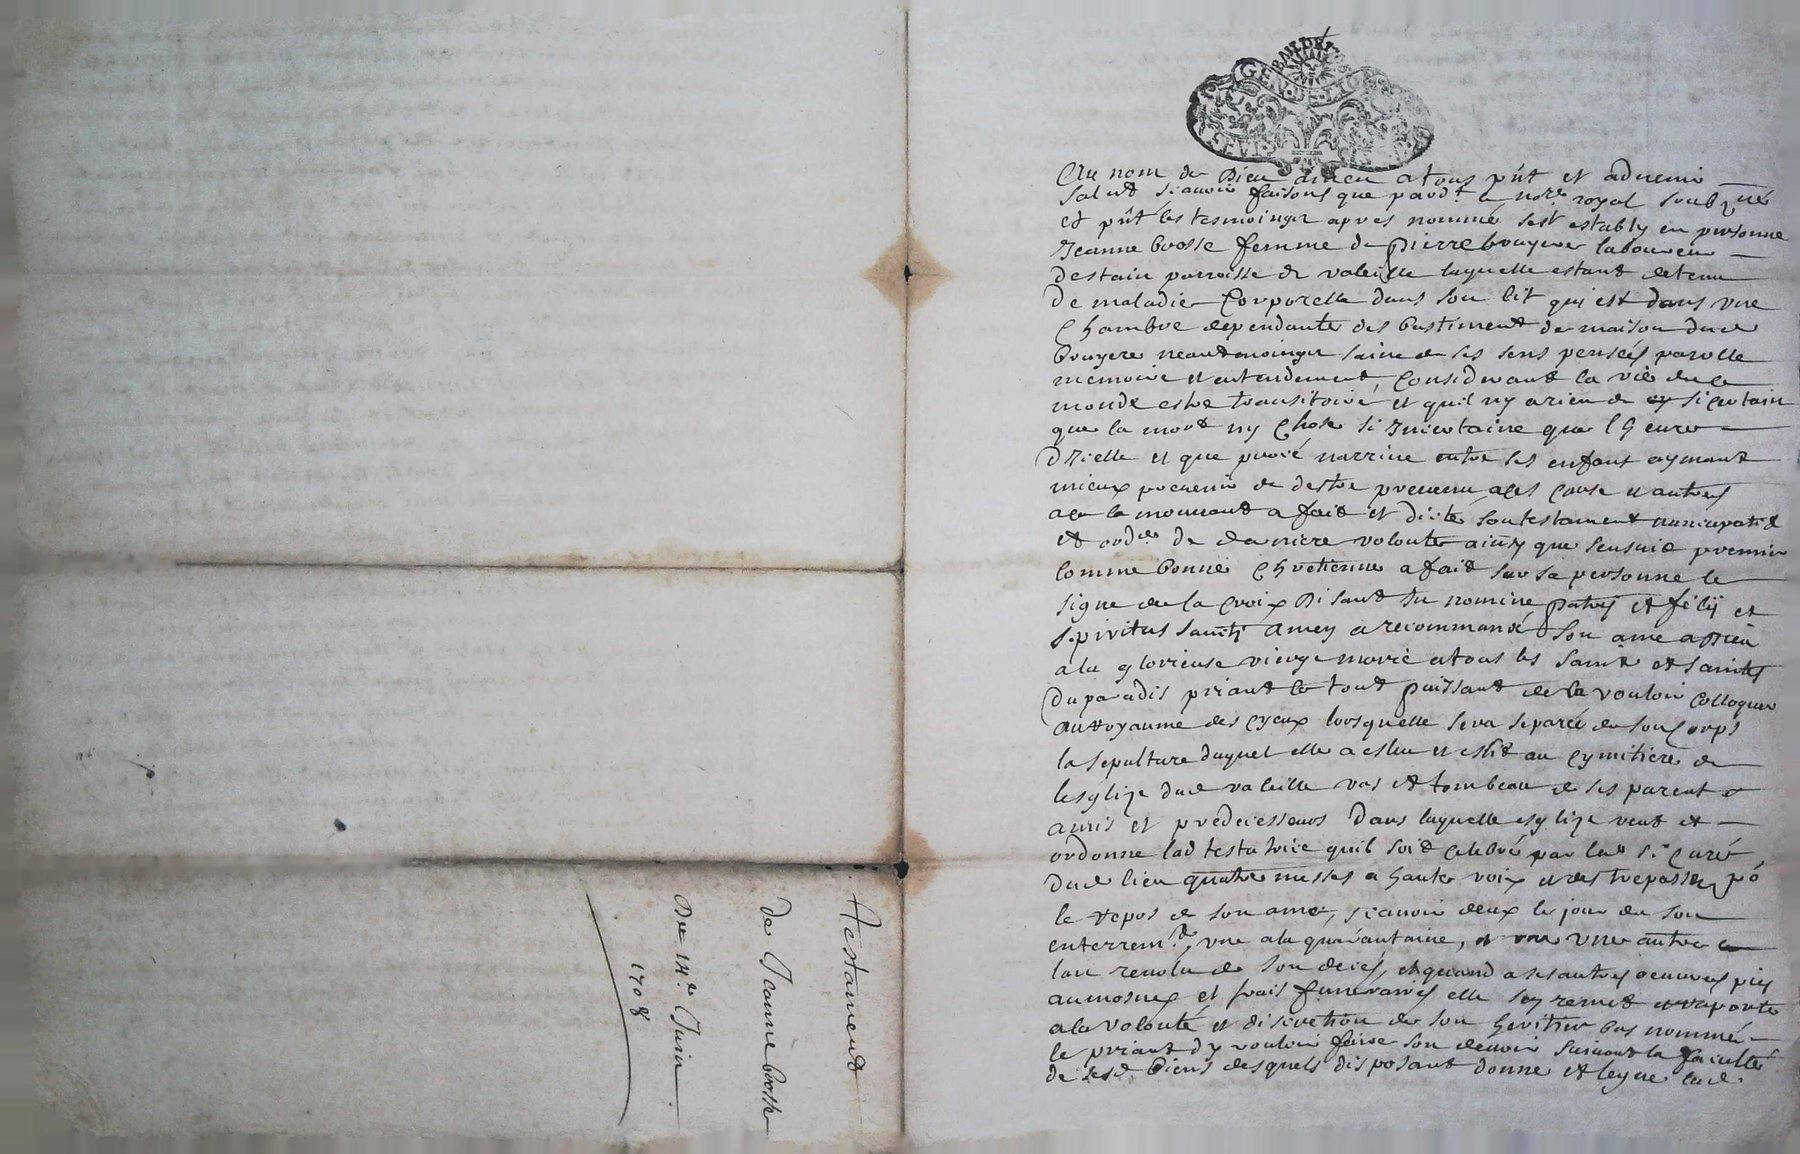 GEN. DE LION
Au nom de Dieu amen a tous pñt et advenir
salut scavoir faisons que pardt le notre royal soubzné
et pñt les tesmoingz apres nommé sest estably en personne
Jeanne brosse femme de pierre bruyere laboureur
destain parroisse de valeille laquelle estant detenu
de maladie Corporelle dans son lit qui est dans une
Chambre dependante des bastiment de maison dud
bruyere neantmoingz saine de ses sens pensées parolle
memoire et entendement, Considerant la vie de ce
monde estre transitoire et quil ny a rien de si certain
que la mort ny Chose si Incertaine que lheure
dicelle et que procé narrive entre ses enfant aymant
mieux prevenir que destre prevenu a ces cause et autres
a ce la mouvant a fait et dicté son testament nuncupatif
et ordce de derniere volonté ainsy que sensuit premier
comme bonne Chretienne a fait sur sa personne le
signe de la Croix Disant In nomine patris et filij et
spiritus sancti Amen a recommandé son ame a Dieu
a la glorieuse vierge marie a tous les saint et saintes
du paradis priant le tout puissant de la vouloir Colloquer
au royaume des Cyeux lorsquelle sera separée de son Corps
la sepulture duquel elle a esleu et eslit au Cymitiere de
lesglize dud valeille vas et tombeau de ses parent et
amis et predecesseurs Dans laquelle esglize veut et
ordonne lad testatrice quil soit celebré par led sr Curé
dud lieu quatre messes a haute voix et des trepassez po
le repos de son ame, scavoir deux le jour de son
enterremt, une a la quarantaine, et une autre a
lan revolu de son decés, et quand a ses autres oeuvres pies
aumosnes et frais funeraires elle sen remet et raporte
a la volonté et discretion de son heritier bas nommé
le priant dy vouloir faire son devoir suivant la faculté
de sesd biens desquels disposant donne et legue lad
Testament
de Jeanne brosse
Du 14e Juin
1708